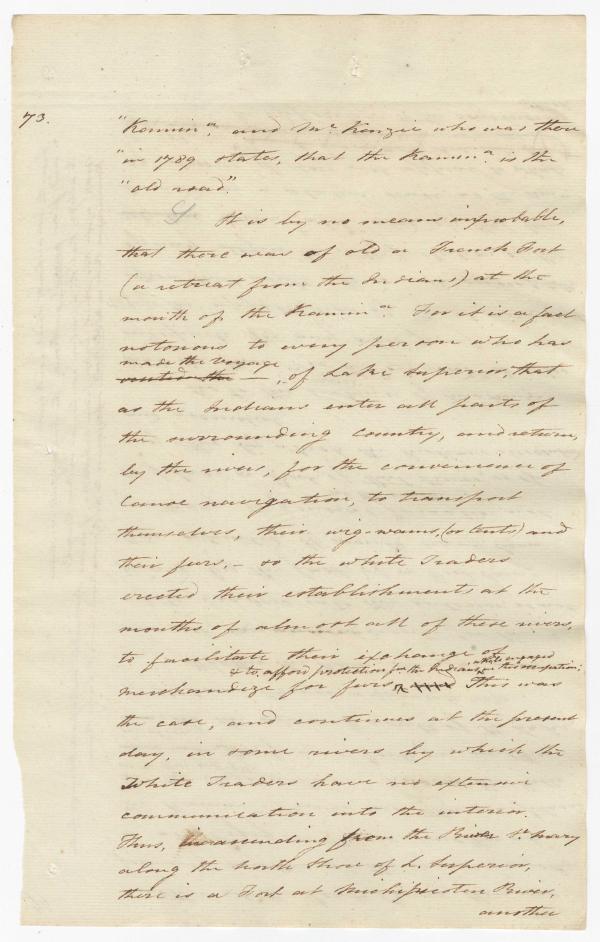 73.
"Kamin.a, and Mc Kenzie who was there
"in 1789 states, that the Kamin.a is the
"old road".
It is by no means improbable,
that there was of old a French Fort
(a retreat from the Indians) at the
mouth of the Kamin.a For it is a fact
notorious to every person who has
made the voyage
visited the —, of Lake Superior, that
as the Indians enter all parts of
the surrounding country, and return,
by the rivers, for the convenience of
Canoe navigation, to transport
themselves, their wig-wams, (or tents) and
their furs, — so the white Traders
erected their establishments at the
mouths of almost all of these rivers,
to facilitate their exchange of
& to afford protection for the Indians, while engaged in this occupation;
merchandize for furs This was
the case, and continues at the present
day, in some rivers by which the
White Traders have no extensive
communication into the interior.
Thus, in ascending from the River St. Mary
along the North Shore of L. Superior,
there is a Fort at Michipicoten River,
another